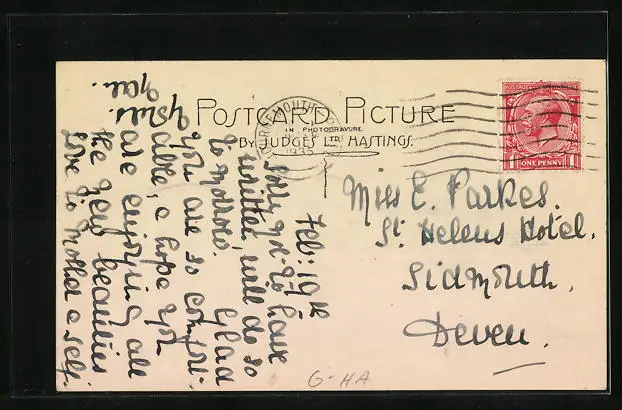 POSTCARD PICTURE
IN PHOTOGRAVURE
BY JUDGES LTD HASTINGS.
1935
POSTAGE
ONE PENNY
Miss E. Parkes.
St Helens Hotel.
Sidmouth,
Deven.
Feb: 19th
Sorry not to have
written, will do so
to morrow. Glad
you are so comfort-
able, & hope you
are enjoying all
the new beauties
Love to Mother & self.
Yours
G-HA